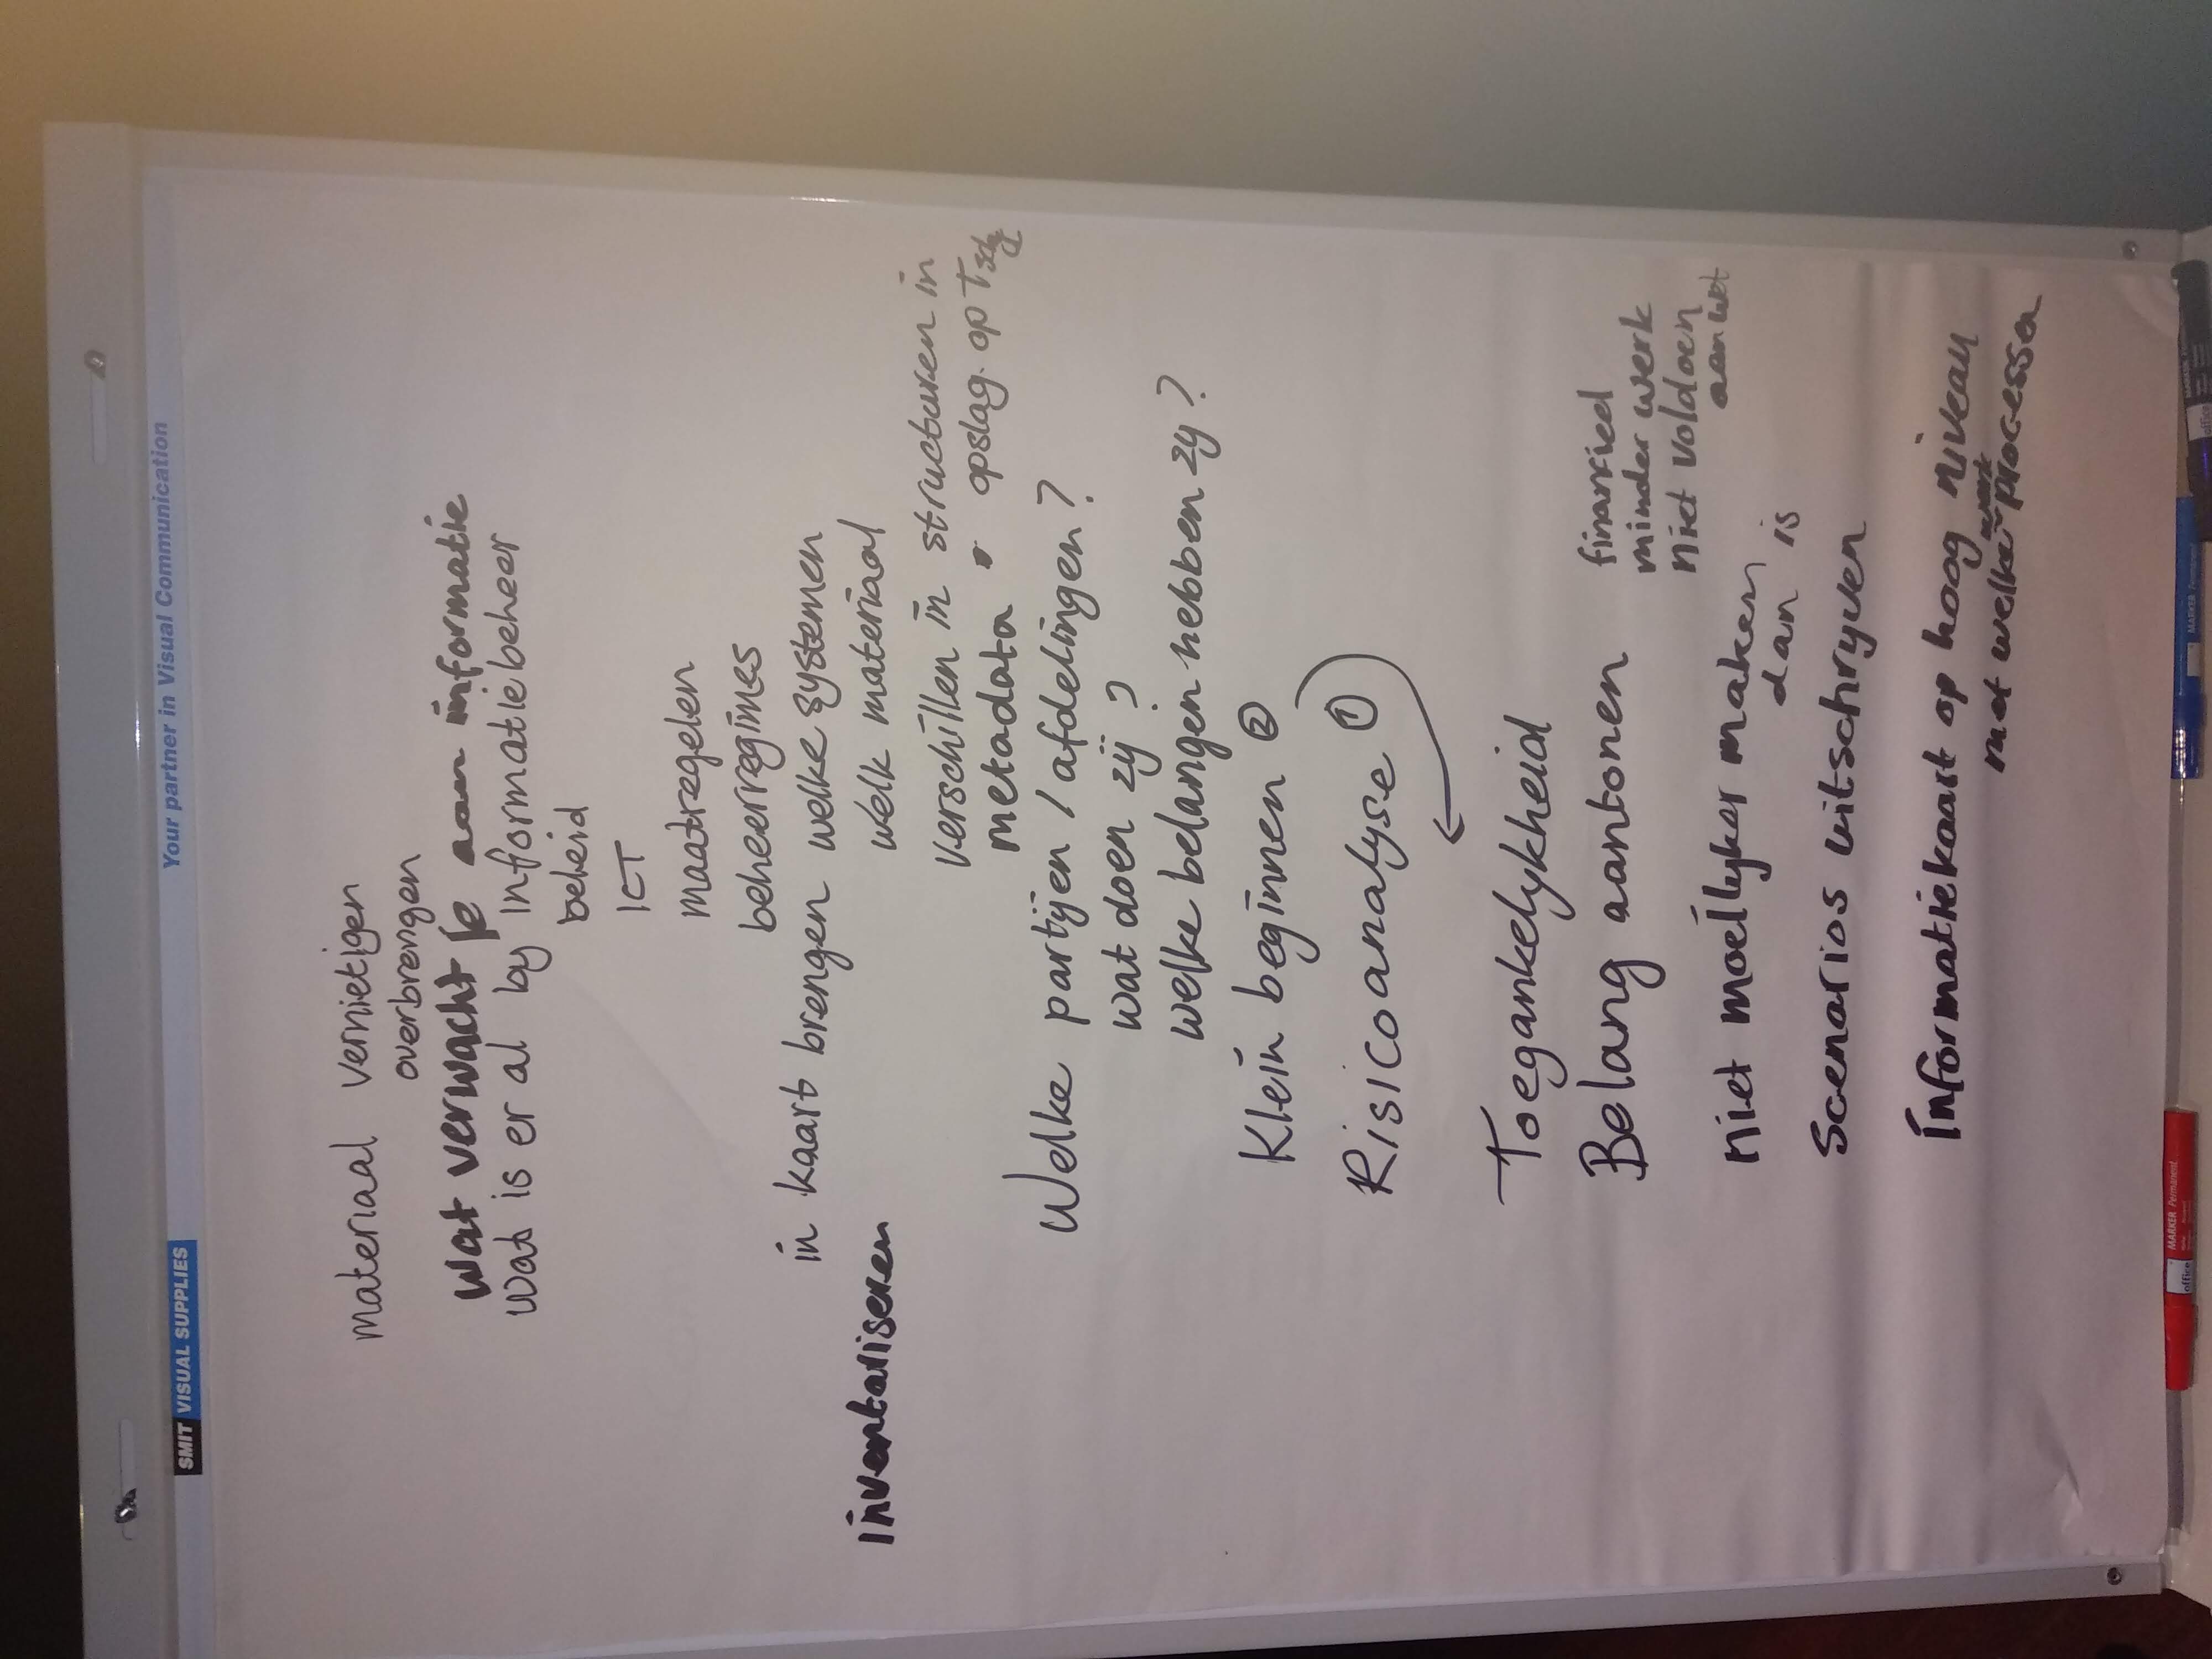 SMIT VISUAL SUPPLIES
Your partner in Visual Communication
materiaal vernietigen
overbrengen
wat verwacht je aan informatie
wat is er al by informatiebeheer
beleid
ICT
maatregelen
beheerregimes
in kaart brengen welke systemen
inventariseren
welk materiaal
verschillen in structuren in
metadata
opslag op T
Welke partijen / afdelingen?
wat doen zij?
welke belangen hebben zy?
Klein beginnen ②
Risicoanalyse ①
Toegankelykheid
Belang aantonen
financieel
minder werk
niet voldoen
aan wet
niet moeilyker maken
dan is
Scenarios uitschryven
Informatiekaart op hoog niveau
met welke werk processen
MARKER Permanent
office